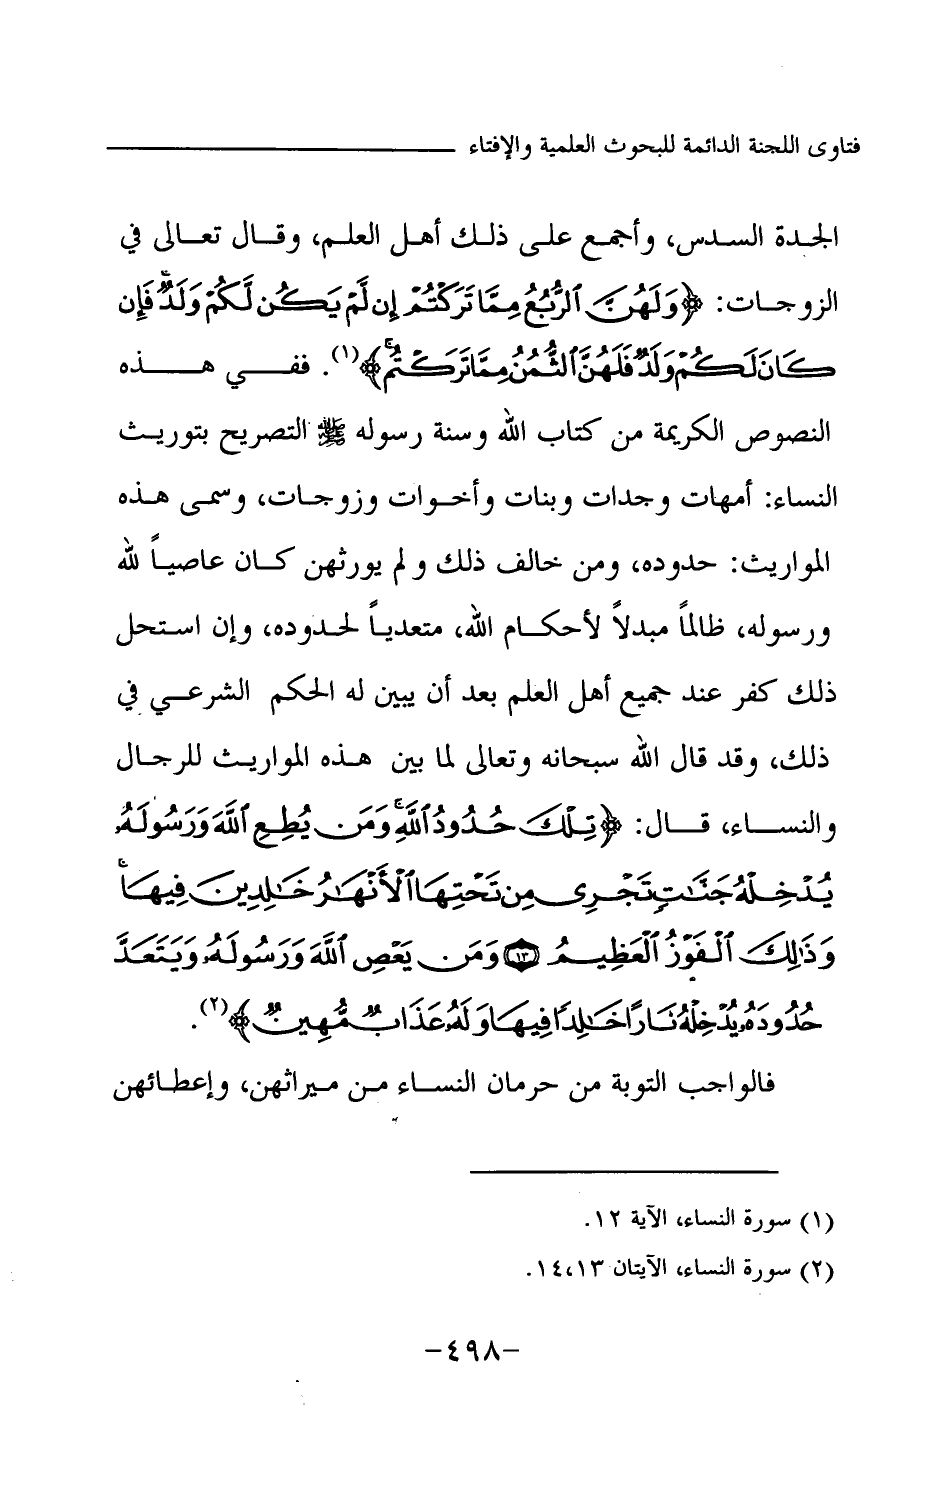 فتاوى اللجنة الدائمة للبحوث العلمية والإفتاء
الجدة السدس، وأجمع على ذلك أهل العلم، وقال تعالى في
الزوجات: ﴿وَلَهُنَّ ٱلرُّبُعُ مِمَّا تَرَكْتُمْ إِن لَّمْ يَكُن لَّكُمْ وَلَدٌ ۚ فَإِن
كَانَ لَكُمْ وَلَدٌ فَلَهُنَّ ٱلثُّمُنُ مِمَّا تَرَكْتُم ۚ﴾(١). ففي هذه
النصوص الكريمة من كتاب الله وسنة رسوله ﷺ التصريح بتوريث
النساء: أمهات وجدات وبنات وأخوات وزوجات، وسمى هذه
المواريث: حدوده، ومن خالف ذلك ولم يورثهن كان عاصياً لله
ورسوله، ظالماً مبدلاً لأحكام الله، متعدياً لحدوده، وإن استحل
ذلك كفر عند جميع أهل العلم بعد أن يبين له الحكم الشرعي في
ذلك، وقد قال الله سبحانه وتعالى لما بين هذه المواريث للرجال
والنساء، قال: ﴿تِلْكَ حُدُودُ ٱللَّهِ ۚ وَمَن يُطِعِ ٱللَّهَ وَرَسُولَهُۥ
يُدْخِلْهُ جَنَّـٰتٍ تَجْرِى مِن تَحْتِهَا ٱلْأَنْهَـٰرُ خَـٰلِدِينَ فِيهَا ۚ
وَذَٰلِكَ ٱلْفَوْزُ ٱلْعَظِيمُ ۝١٣ وَمَن يَعْصِ ٱللَّهَ وَرَسُولَهُۥ وَيَتَعَدَّ
حُدُودَهُۥ يُدْخِلْهُ نَارًا خَـٰلِدًا فِيهَا وَلَهُۥ عَذَابٌ مُّهِينٌ﴾(٢).
فالواجب التوبة من حرمان النساء من ميراثهن، وإعطائهن
(١) سورة النساء، الآية ١٢.
(٢) سورة النساء، الآيتان ١٣،١٤.
-٤٩٨-